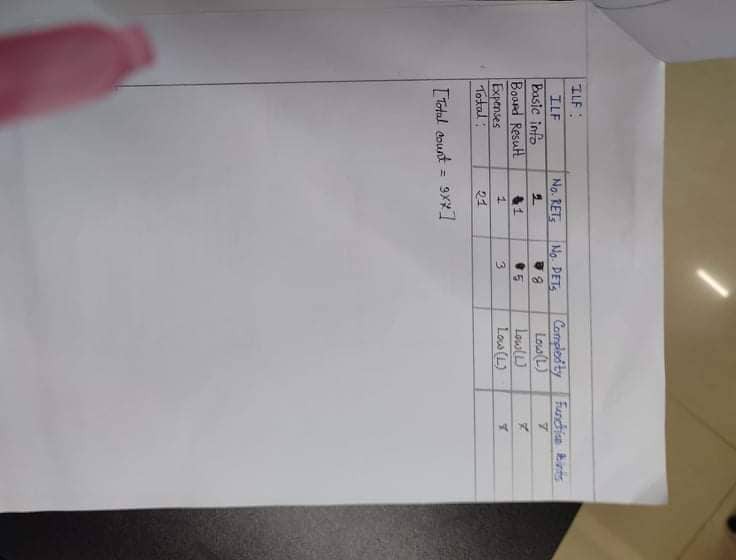 ILF :
ILF No. RETs No. DETs Complexity Function Points
Basic info 1 8 Low(L) 7
Board Result 1 5 Low(L) 7
Expenses 1 3 Low(L) 7
Total : 21
[Total count = 3x7]